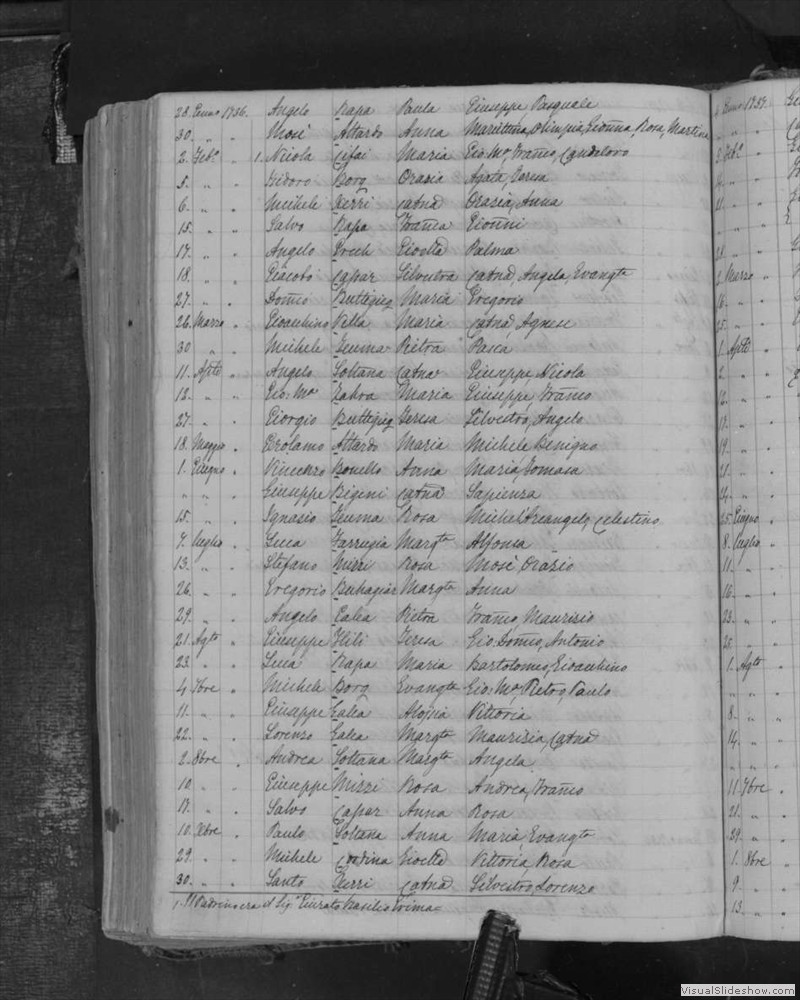 28. Enno 1736. Angelo Rapa Paula Giuseppe Pasquale
30. " " Mosè Attardo Anna Marittana, Olimpia, Gioñna, Rosa, Martina
2. Feb.º " 1. Nicola Cifai Maria Gio: Mª, Frañco, Candeloro
5. " " Isidoro Borg Orasia Agata, Teresa
6. " " Michele Xerri Catnã Orasia, Anna
15. " " Salvo Rapa Frañca Gioñni
17. " " Angelo Grech Gioetta Palma
18. " " Giacobo Caspar Silvestra Catnã, Angela, Evangta
27. " " Domco Buttigieg Maria Gregorio
26. Marzo " Gioachino Vella Maria Catnã, Agnese
30 " " Michele Zeuma Pietra Pasca
11. Aple " Angelo Soltana Catnã Giuseppe, Nicola
12. " " Gio: Mª Zahra Maria Giuseppe, Frañco
27. " " Giorgio Buttigieg Teresa Silvestro, Angelo
18. Maggio " Grolamo Attardo Maria Michele Benigno
1. Giugno " Vincenzo Bonello Anna Maria, Tomasa
" " " Giuseppe Bigeni Catnã Sapienza
15. " " Ignasio Zeuma Rosa Michel'Arcangelo, Celestino
7. Luglio " Luca Farrugia Margta Alfonsa
13. " " Stefano Mizzi Rosa Mosè Orazio
26. " " Gregorio Buhagiar Margta Anna
29. " " Angelo Galea Pietra Frañco, Maurizio
21. Agto " Giuseppe Hili Teresa Gio: Domco, Antonio
23. " " Luca Rapa Maria Bartolomeo, Gioachino
4. 7bre " Michele Borg Evangta Gio: Mª, Pietro, Paulo
11. " " Giuseppe Galea Aloisia Vittoria
22. " " Lorenzo Galea Margta Maurizia, Catnã
2. 8bre " Andrea Soltana Margta Angela
10. " " Giuseppe Mizzi Rosa Andrea, Frañco
17. " " Salvo Caspar Anna Rosa
10. Xbre " Paulo Soltana Anna Maria Evangta
29. " " Michele Cordina Gioetta Vittoria, Rosa
30. " " Santo Xerri Catnã Silvestro, Lorenzo
1. Il Padrino era il Sig.
Enno 1737.
Feb.º
Marzo
1. Aple
2.
12.
19.
25. Giugno
8. Luglio
11.
16.
23.
25.
1. Agto
8.
14.
11. 7bre
21.
29.
1. 8bre
9.
13.
VisualSlideshow.com